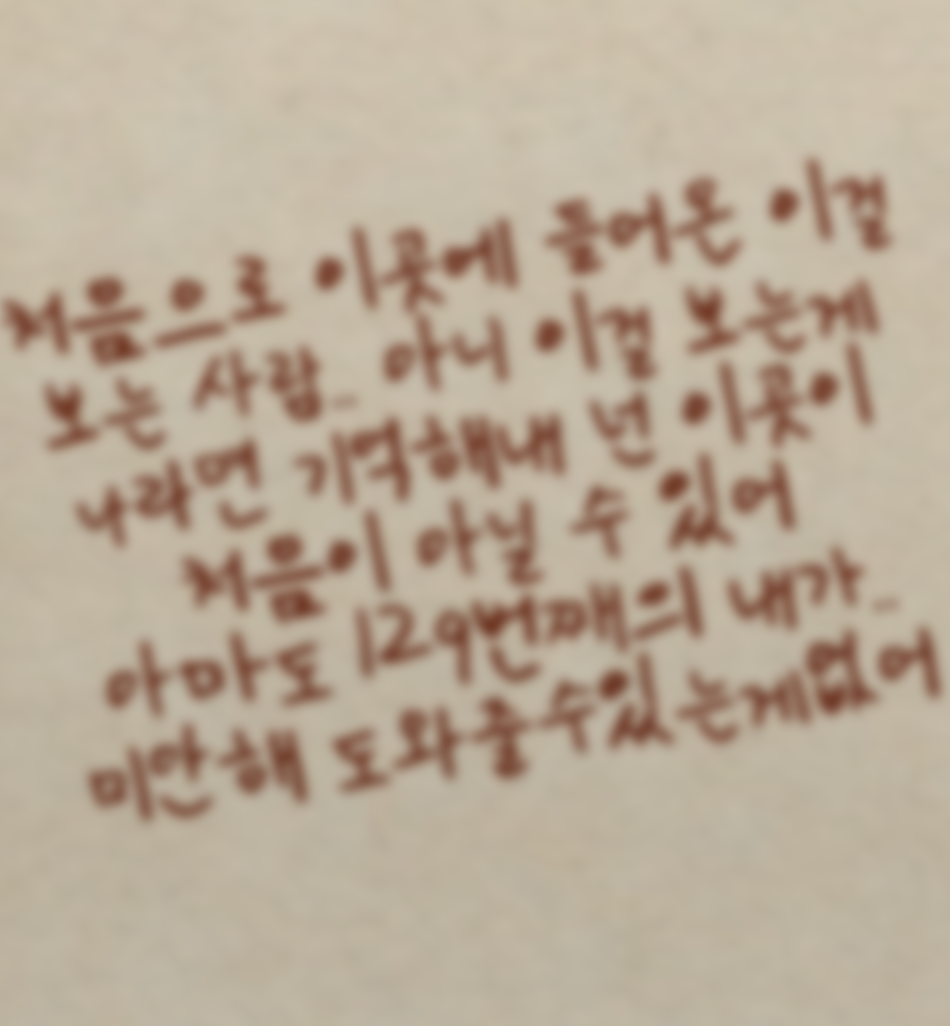 처음으로 이곳에 들어온 이걸
보는 사람.. 아니 이걸 보는게
나라면 기억해내 넌 이곳이
처음이 아닐 수 있어
아마도 129번째의 내가..
미안해 도와줄수있는게없어